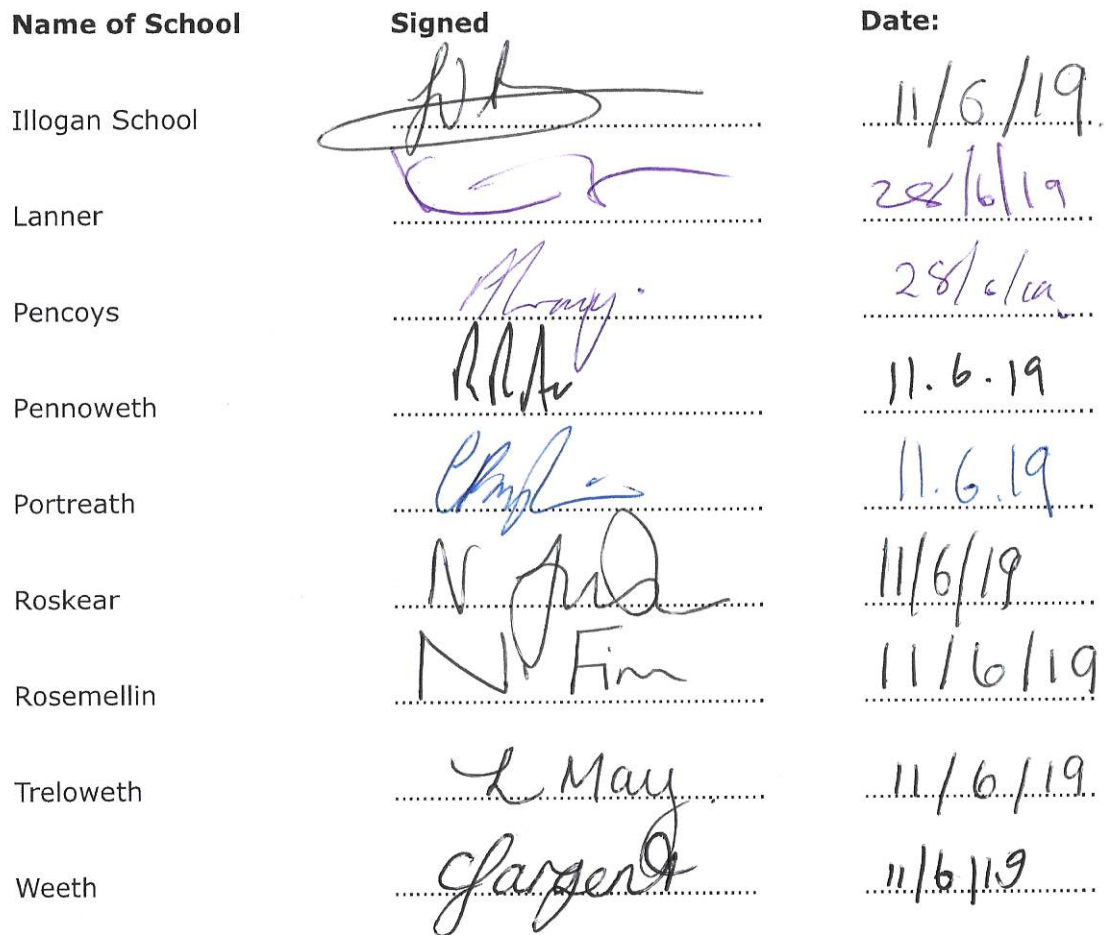 Name of School Signed Date:
Illogan School 11/6/19
Lanner 28/6/19
Pencoys 28/
Pennoweth 11.6.19
Portreath 11.6.19
Roskear N 11/6/19
Rosemellin N. Finn 11/6/19
Treloweth L May. 11/6/19
Weeth CSargent 11/6/19